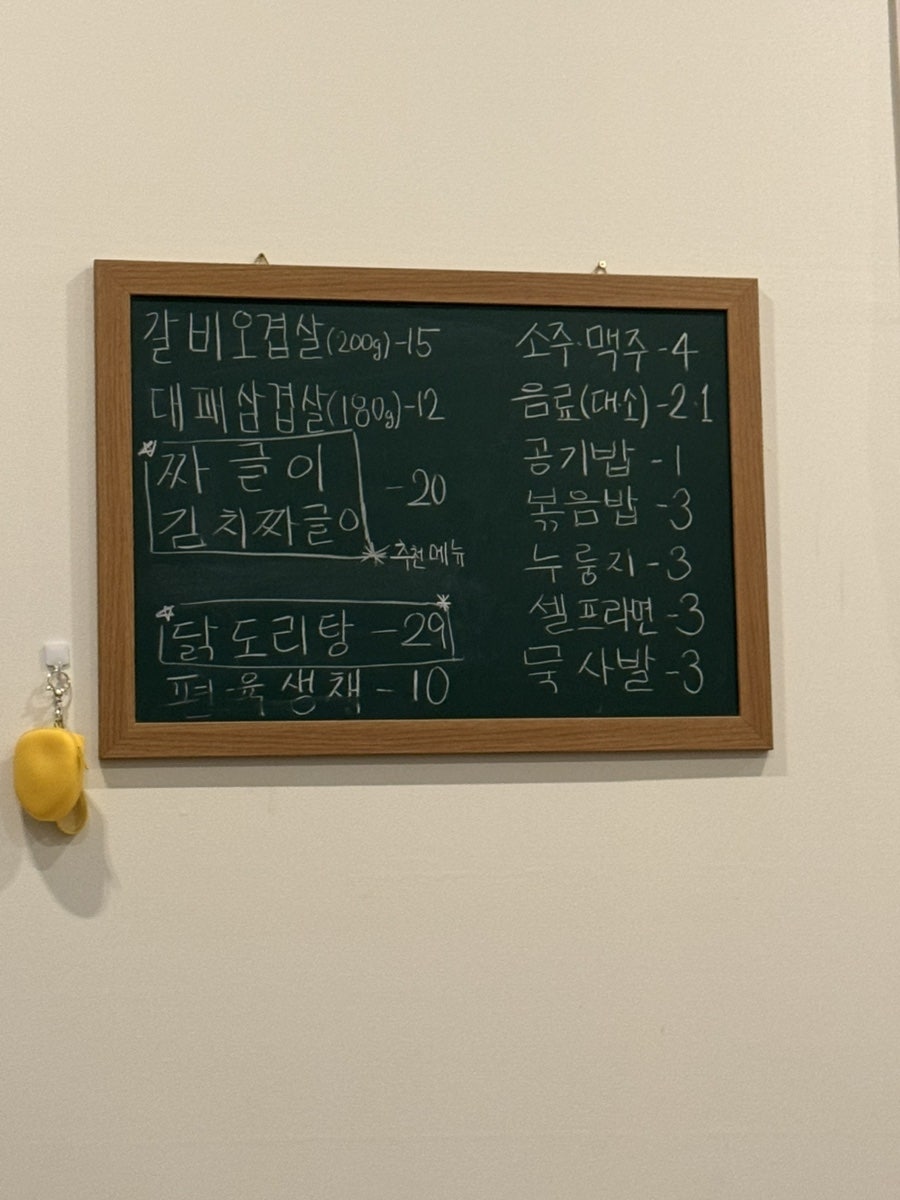 갈비오겹살(200g)-15
대패삼겹살(180g)-12
짜글이
김치짜글이
-20
추천메뉴
닭도리탕-29
편육생채-10
소주·맥주-4
음료(대·소)-2·1
공기밥-1
볶음밥-3
누룽지-3
셀프라면-3
묵사발-3